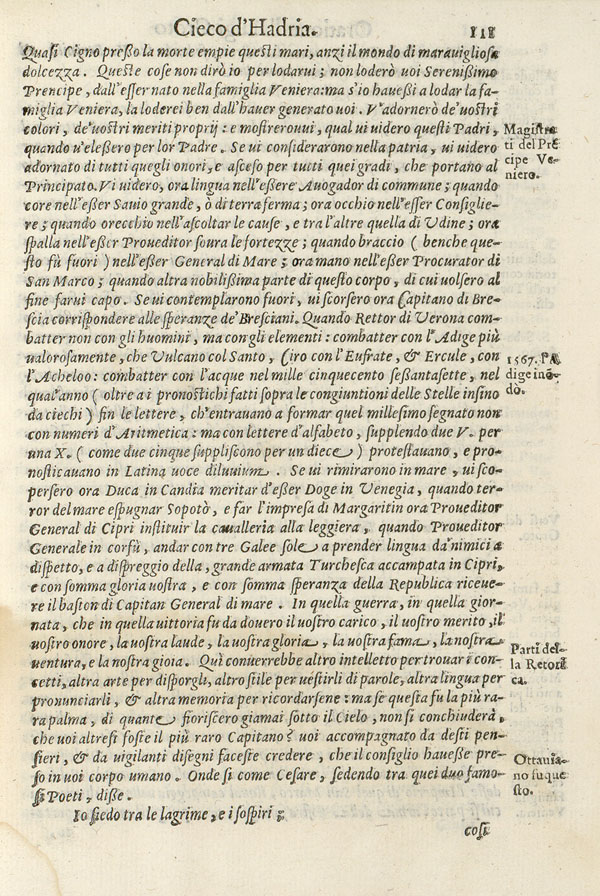 Cieco d'Hadria. 118
Quasi Cigno preſſo la morte empie queſti mari, anzi il mondo di marauiglioſa
dolcezza. Queſte coſe non dirò io per lodarui; non loderò uoi Sereniſſimo
Prencipe, dall'eſſer nato nella famiglia Veniera: ma s'io haueſſi a lodar la fa-
miglia Veniera, la loderei ben dall'hauer generato uoi. V'adornerò de'uoſtri
colori, de'uoſtri meriti proprij: e moſtreronui, qual ui uidero queſti Padri,
quando u'eleſſero per lor Padre. Se ui conſiderarono nella patria, ui uidero
adornato di tutti quegli onori, e aſceſo per tutti quei gradi, che portano al
Principato. Vi uidero, ora lingua nell'eſſere Auogador di commune; quando
core nell'eſſer Sauio grande, ò di terra ferma; ora occhio nell'eſſer Conſiglie-
re; quando orecchio nell'aſcoltar le cauſe, e tra l'altre quella di Vdine; ora
ſpalla nell'eſſer Proueditor ſoura le fortezze; quando braccio (benche que-
ſto fù fuori) nell'eſſer General di Mare; ora mano nell'eſſer Procurator di
San Marco; quando altra nobiliſſima parte di queſto corpo, di cui uolſero al
fine farui capo. Se ui contemplarono fuori, ui ſcorſero ora Capitano di Bre-
ſcia corriſpondere alle ſperanze de'Breſciani. Quando Rettor di Verona com-
batter non con gli huomini, ma con gli elementi: combatter con l'Adige più
ualoroſamente, che Vulcano col Santo, Ciro con l'Eufrate, & Ercule, con
l'Acheloo: combatter con l'acque nel mille cinquecento ſeſſantaſette, nel
qual'anno (oltre a i pronoſtichi fatti ſopra le congiuntioni delle Stelle inſino
da ciechi) fin le lettere, ch'entrauano a formar quel milleſimo ſegnato non
con numeri d'Aritmetica: ma con lettere d'alfabeto, ſupplendo due V. per
una X. (come due cinque ſuppliſcono per un diece) proteſtauano, e pro-
noſticauano in Latina uoce diluuium. Se ui rimirarono in mare, ui sco-
perſero ora Duca in Candia meritar d'eſſer Doge in Venegia, quando ter-
ror del mare eſpugnar Sopotò, e far l'impreſa di Margaritin ora Proueditor
General di Cipri inſtituir la caualleria alla leggiera, quando Proueditor
Generale in corfù, andar con tre Galee ſole a prender lingua da'nimici a
diſpetto, e a diſpreggio della, grande armata Turcheſca accampata in Cipri,
e con ſomma gloria uoſtra, e con ſomma ſperanza della Republica riceue-
re il baſton di Capitan General di mare. In quella guerra, in quella gior-
nata, che in quella uittoria fu da douero il uoſtro carico, il uoſtro merito, il
uoſtro onore, la uoſtra laude, la uoſtra gloria, la uoſtra fama, la noſtra
uentura, e la noſtra gioia. Quì conuerrebbe altro intelletto per trouar i con-
cetti, altra arte per diſporgli, altro ſtile per ueſtirli di parole, altra lingua per
pronunciarli, & altra memoria per ricordarſene: ma ſe queſta fu la più ra-
ra palma, di quante fioriſcero giamai ſotto il Cielo, non ſi conchiuderà,
che uoi altreſi foſte il più raro Capitano? uoi accompagnato da deſti pen-
ſieri, & da uigilanti diſegni faceſte credere, che il conſiglio haueſſe pre-
ſo in uoi corpo umano. Onde ſi come Ceſare, ſedendo tra quei duo famo-
ſi Poeti, diſſe.
Io ſiedo tra le lagrime, e i ſoſpiri;
coſi
Magiſtra
ti del Prē
cipe Ve-
niero.
1567. l'A
dige inō-
dò.
Parti del-
la Retori
ca.
Ottauia-
no ſu que
ſto.